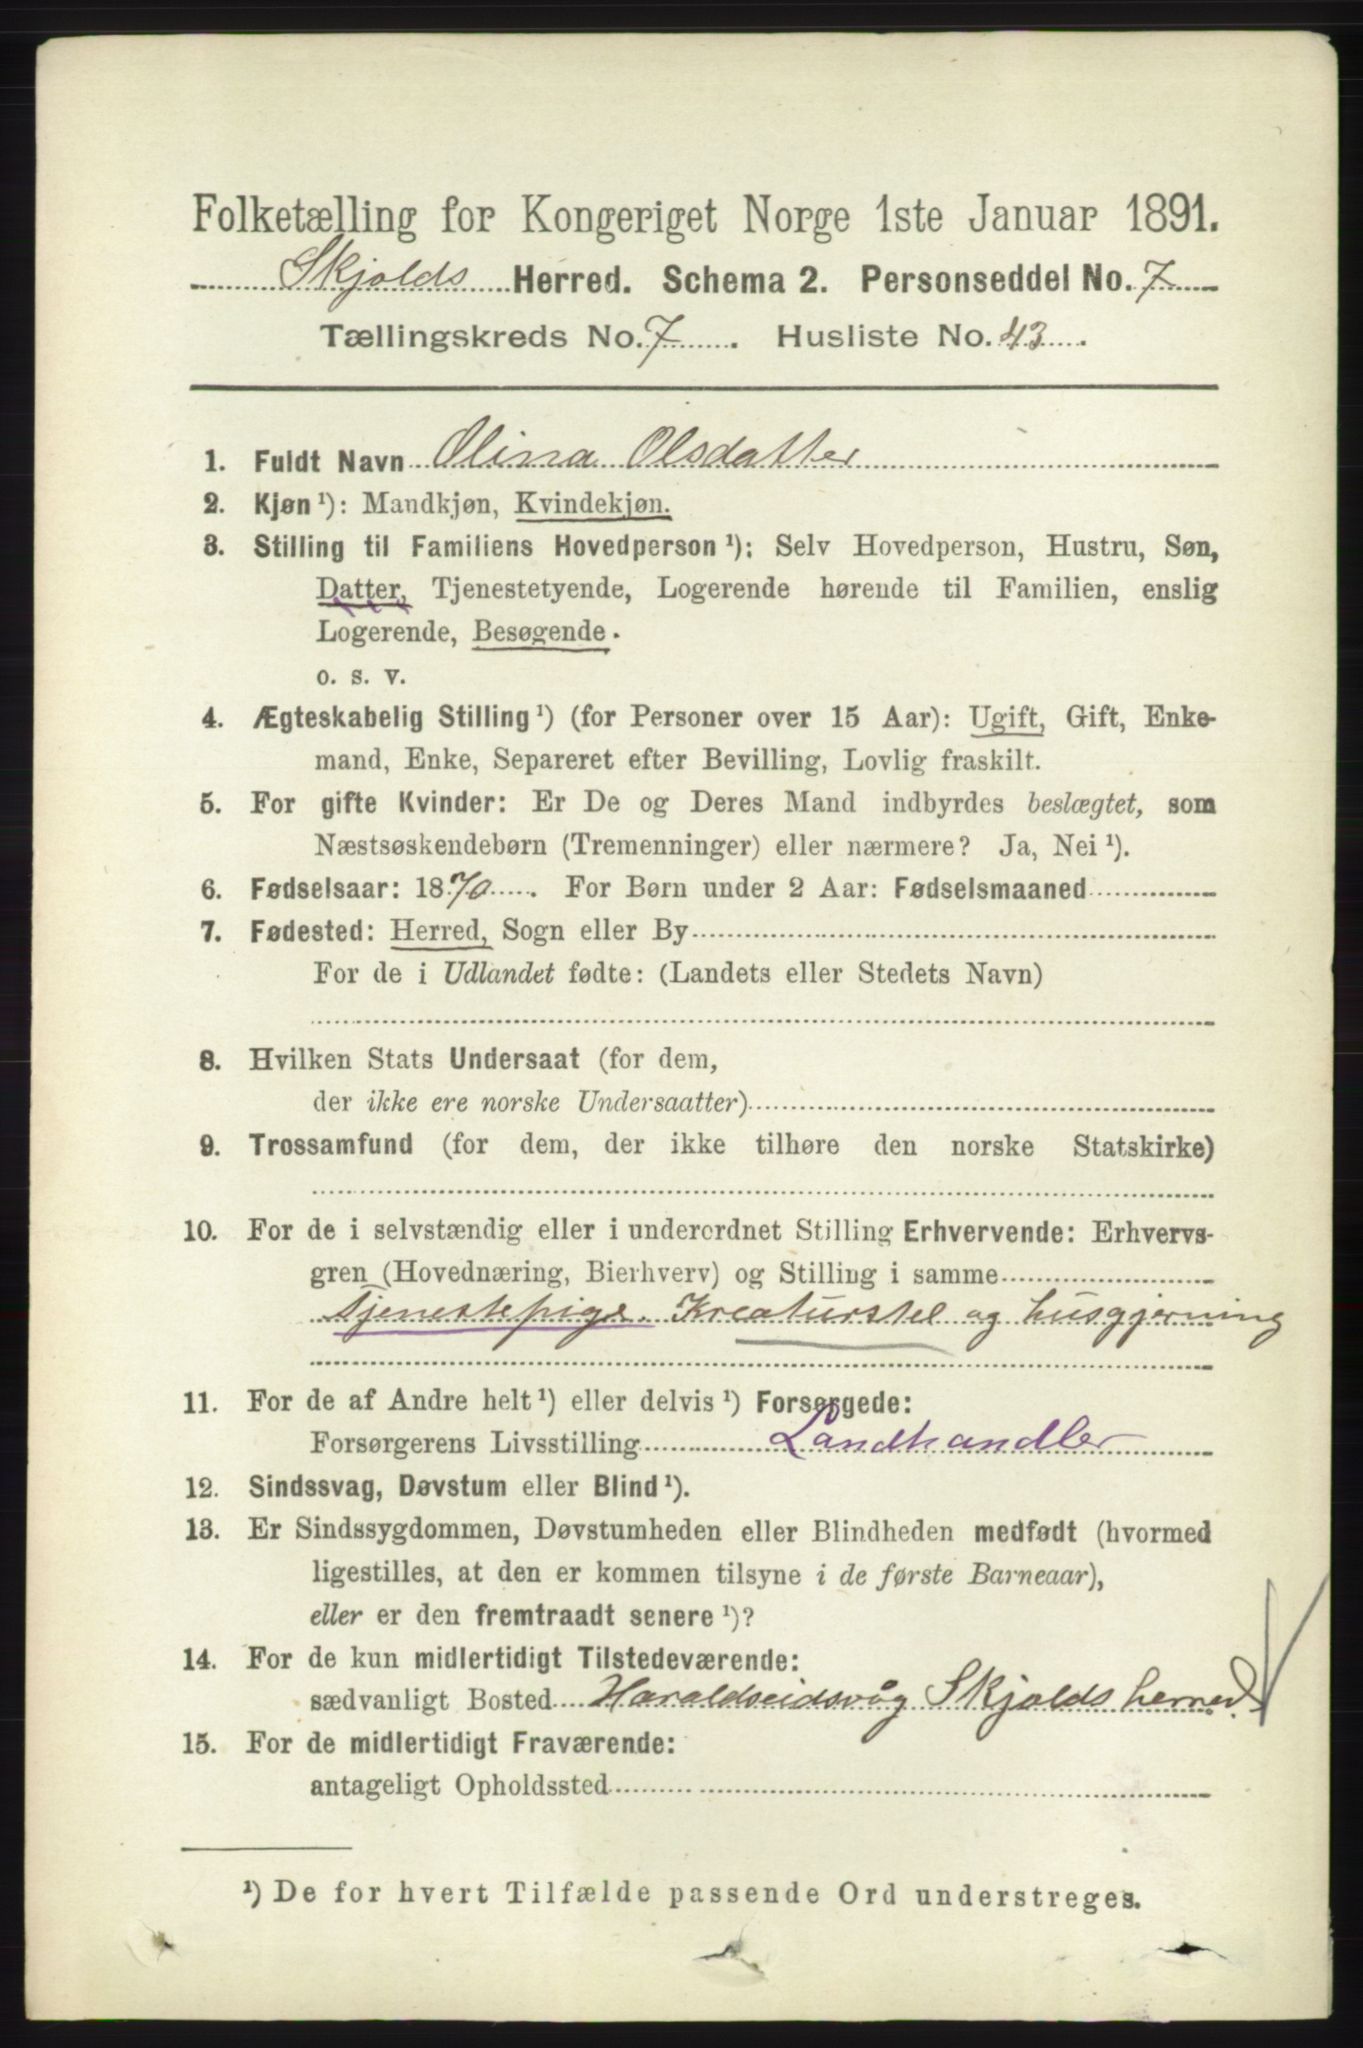 Folketælling for Kongeriget Norge 1ste Januar 1891.
Skjolds Herred. Schema 2. Personseddel No. 7
Tællingskreds No. 7. Husliste No. 43.
1. Fuldt Navn Olina Olsdatter
2. Kjøn ¹): Mandkjøn, Kvindekjøn.
3. Stilling til Familiens Hovedperson ¹): Selv Hovedperson, Hustru, Søn,
Datter, Tjenestetyende, Logerende hørende til Familien, enslig
Logerende, Besøgende.
o. s. v.
4. Ægteskabelig Stilling ¹) (for Personer over 15 Aar): Ugift, Gift, Enke-
mand, Enke, Separeret efter Bevilling, Lovlig fraskilt.
5. For gifte Kvinder: Er De og Deres Mand indbyrdes beslægtet, som
Næstsøskendebørn (Tremenninger) eller nærmere? Ja, Nei ¹).
6. Fødselsaar: 1870. For Børn under 2 Aar: Fødselsmaaned
7. Fødested: Herred, Sogn eller By
For de i Udlandet fødte: (Landets eller Stedets Navn)
8. Hvilken Stats Undersaat (for dem,
der ikke ere norske Undersaatter)
9. Trossamfund (for dem, der ikke tilhøre den norske Statskirke)
10. For de i selvstændig eller i underordnet Stilling Erhvervende: Erhvervs-
gren (Hovednæring, Bierhverv) og Stilling i samme
Tjenestepige. Kreaturstel og husgjerning
11. For de af Andre helt ¹) eller delvis ¹) Forsørgede:
Forsørgerens Livsstilling Landhandler
12. Sindssvag, Døvstum eller Blind ¹).
13. Er Sindssygdommen, Døvstumheden eller Blindheden medfødt (hvormed
ligestilles, at den er kommen tilsyne i de første Barneaar),
eller er den fremtraadt senere ¹)?
14. For de kun midlertidigt Tilstedeværende:
sædvanligt Bosted Haraldseidsvåg Skjolds herred.
15. For de midlertidigt Fraværende:
antageligt Opholdssted
¹) De for hvert Tilfælde passende Ord understreges.